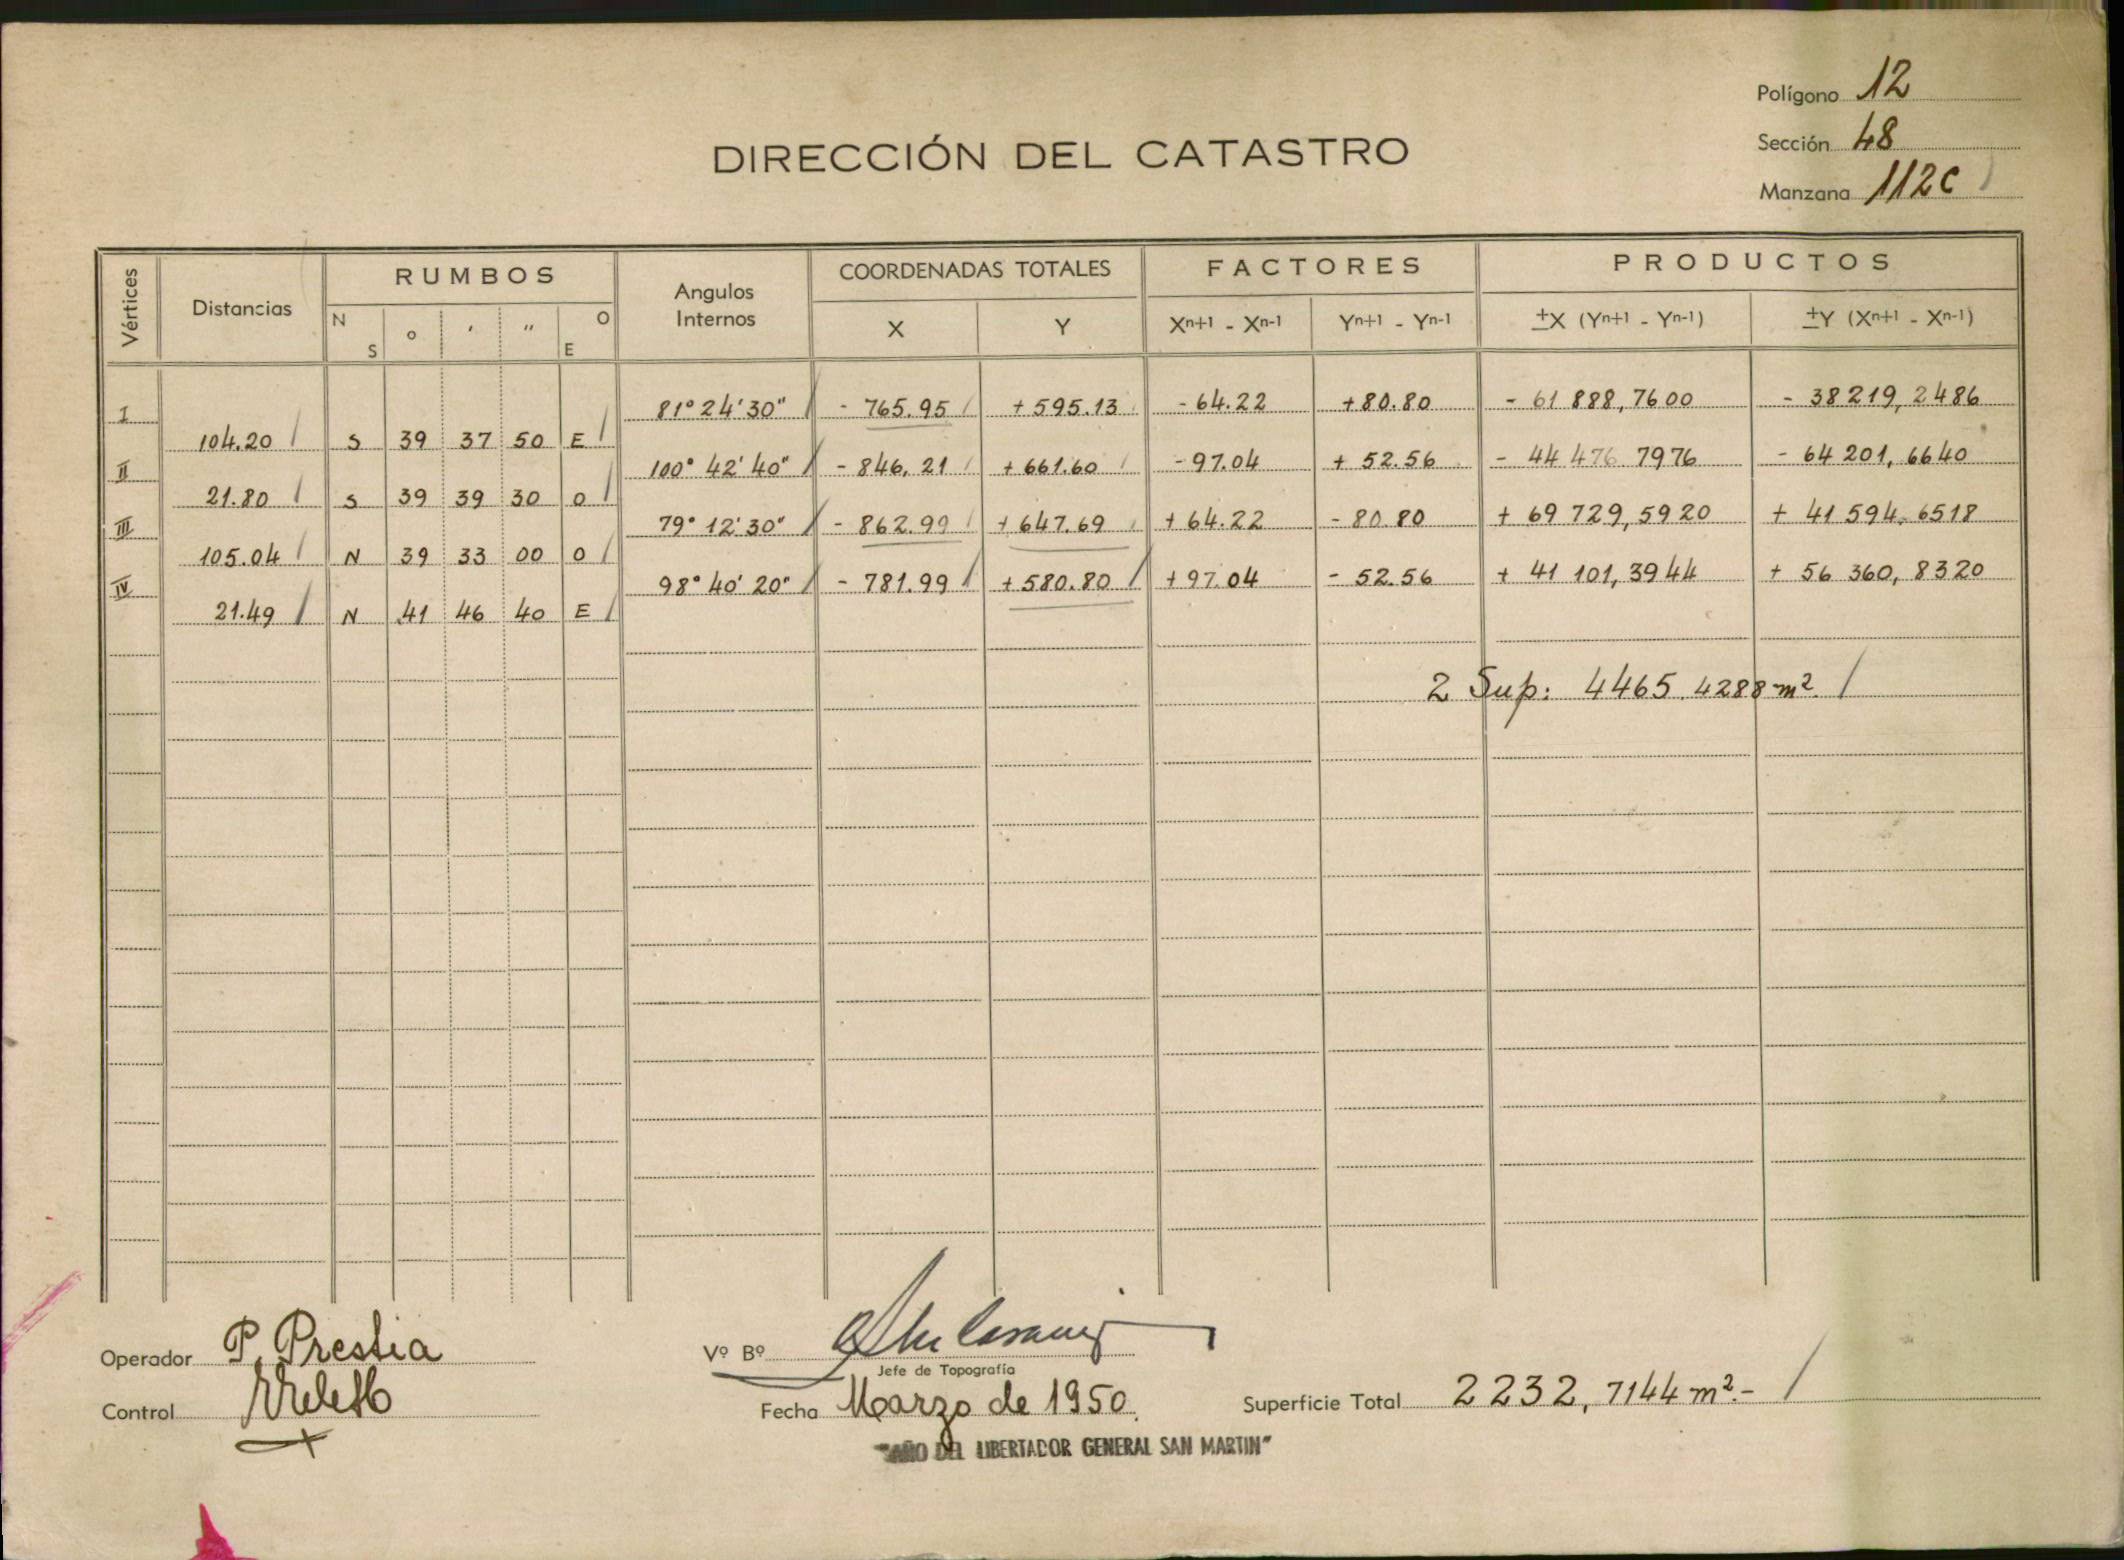 Polígono 12
Sección 48
Manzana 112c
DIRECCIÓN DEL CATASTRO
Vértices Distancias RUMBOS Angulos Internos COORDENADAS TOTALES FACTORES PRODUCTOS
N S ° ' " O E X Y Xn+1 - Xn-1 Yn+1 - Yn-1 ±X (Yn+1 - Yn-1) ±Y (Xn+1 - Xn-1)
I 81° 24' 30" - 765.95 + 595.13 - 64.22 + 80.80 - 61 888,7600 - 38 219,2486
104.20 S 39 37 50 E
II 100° 42' 40" - 846,21 + 661.60 - 97.04 + 52.56 - 44 476 7976 - 64 201,6640
21.80 S 39 39 30 O
III 79° 12' 30" - 862.99 + 647.69 + 64.22 - 80 80 + 69 729,5920 + 41 594.6518
105.04 N 39 33 00 O
IV 98° 40' 20" - 781.99 + 580.80 + 97.04 - 52.56 + 41 101,3944 + 56 360,8320
21.49 N 41 46 40 E
2 Sup: 4465.4288 m²
Operador P. Prestia
Vº Bº
Jefe de Topografía
Control
Fecha Marzo de 1950.
Superficie Total 2232,7144 m².-
"AÑO DEL LIBERTADOR GENERAL SAN MARTIN"